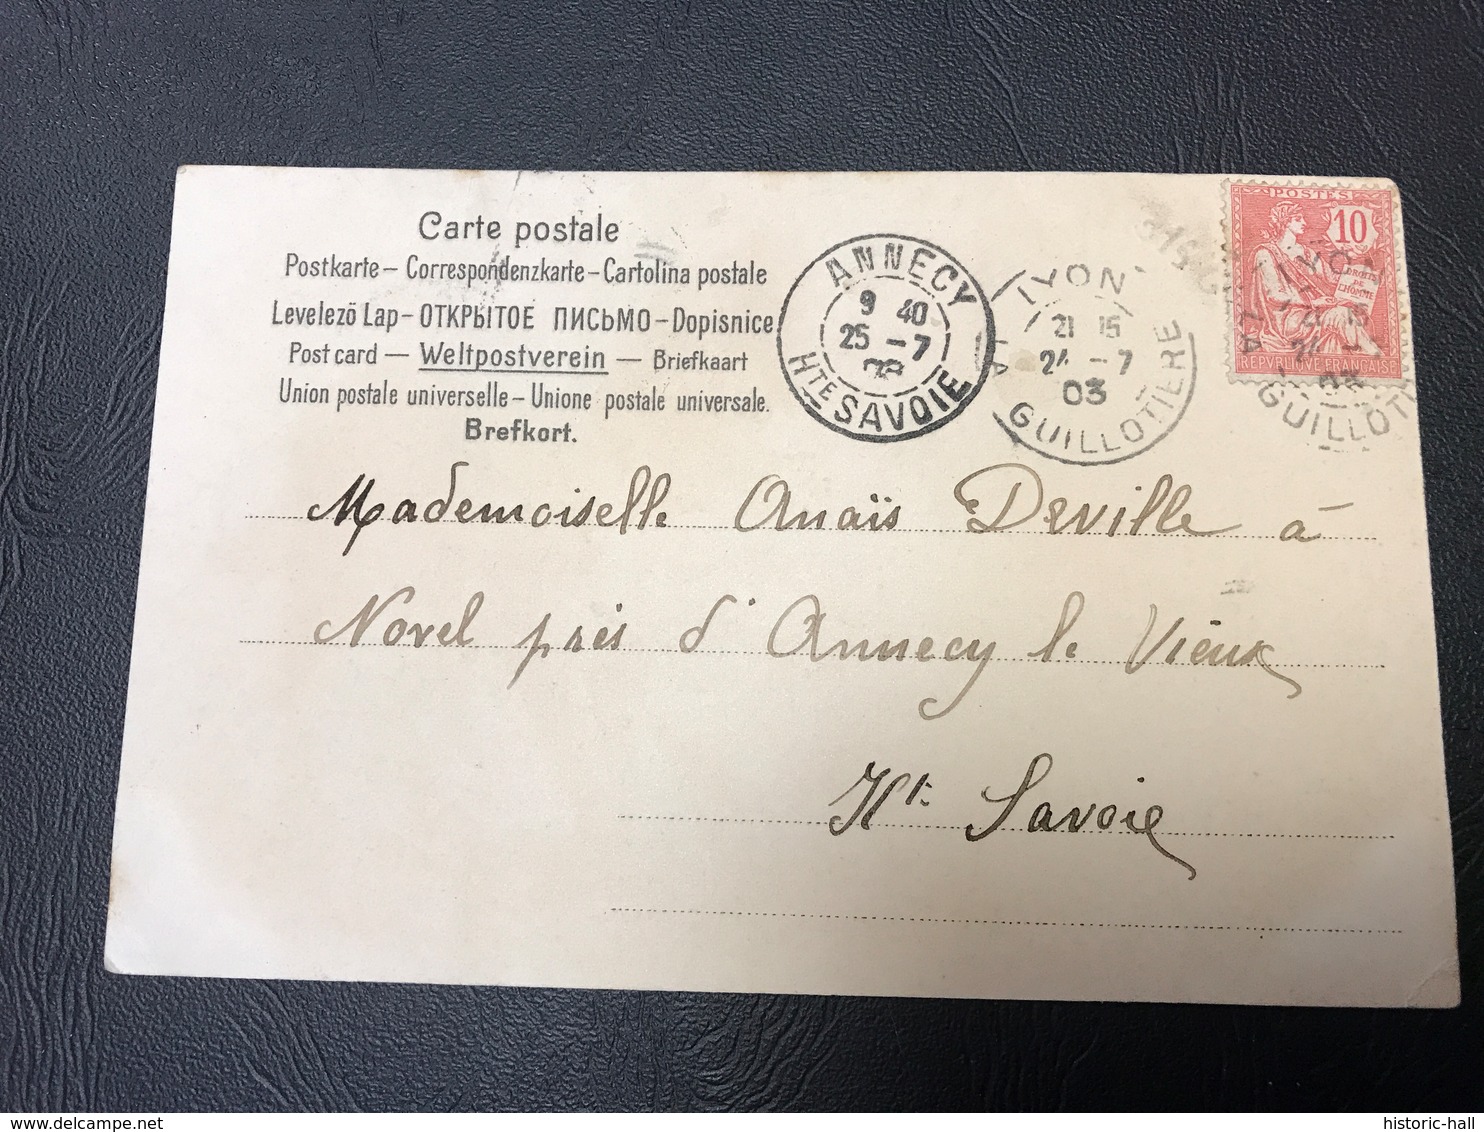 Carte postale
Postkarte – Correspondenzkarte – Cartolina postale
Levelező Lap – ОТКРЫТОЕ ПИСЬМО – Dopisnice
Post card — Weltpostverein — Briefkaart
Union postale universelle – Unione postale universale.
Brefkort.
ANNECY
9 40
25 - 7
HTE SAVOIE
LYON
21 15
24 - 7
03
LA GUILLOTIERE
POSTES
10
DROITS
DE
L'HOMME
REPVBLIQVE FRANÇAISE
LYON
LA GUILLOTI
Mademoiselle Anaïs Deville à
Novel près d'Annecy le Vieux
Hte Savoie
historic-hall